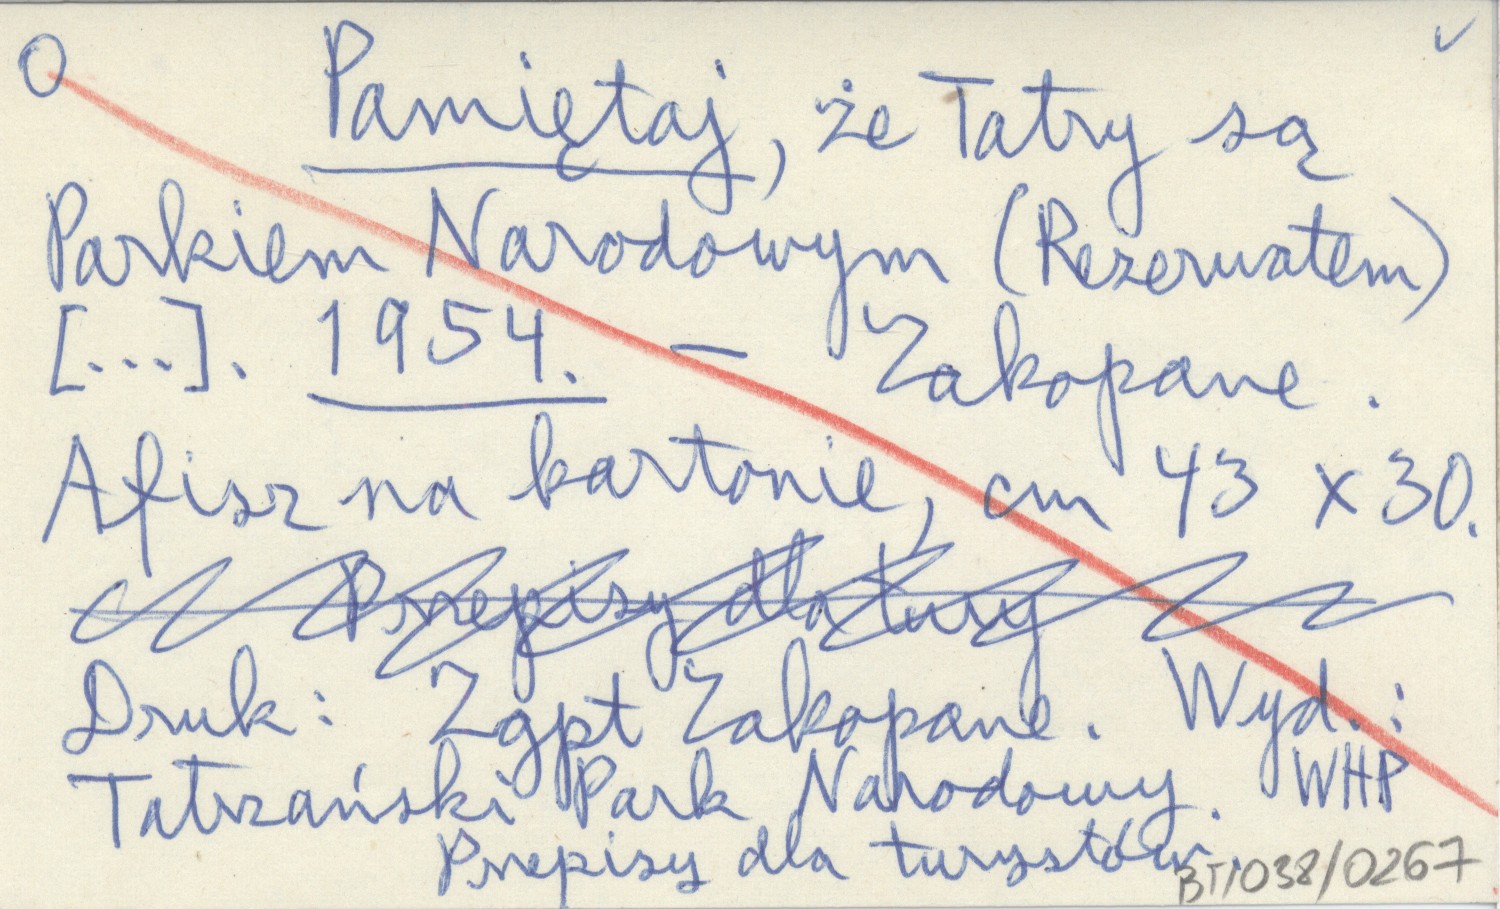 O Pamiętaj, że Tatry są
Parkiem Narodowym (Rezerwatem)
[...]. 1954. – Zakopane.
Afisz na kartonie, cm 43 x 30.
Przepisy dla tury
Druk: Zgpt Zakopane. Wyd.:
Tatrzański Park Narodowy. WHP
Przepisy dla turystów.
BT/038/0267